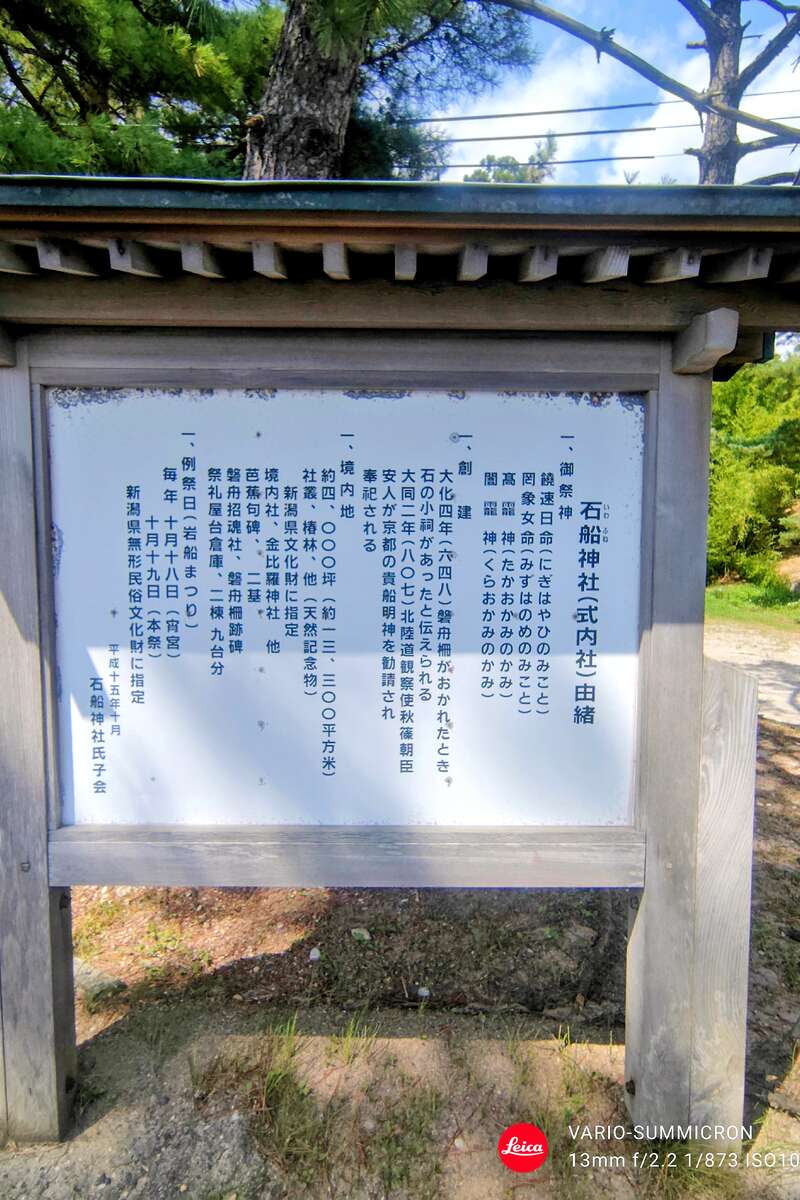 石船神社(式内社)由緒
いわふね
一、御祭神
饒速日命(にぎはやひのみこと)
罔象女命(みずはのめのみこと)
髙龗神(たかおかみのかみ)
闇龗神(くらおかみのかみ)
一、創建
大化四年(六四八)磐舟柵がおかれたとき
石の小祠があったと伝えられる
大同二年(八〇七)北陸道観察使秋篠朝臣
安人が京都の貴船明神を勧請され
奉祀される
一、境内地
約四、〇〇〇坪(約一三、三〇〇平方米)
社叢、椿林、他(天然記念物)
新潟県文化財に指定
境内社、金比羅神社 他
芭蕉句碑、二基
磐舟招魂社、磐舟柵跡碑
祭礼屋台倉庫、二棟 九台分
一、例祭日(岩船まつり)
毎年 十月十八日(宵宮)
十月十九日(本祭)
新潟県無形民俗文化財に指定
平成十五年十月
石船神社氏子会
Leica
VARIO-SUMMICRON
13mm f/2.2 1/873 ISO10